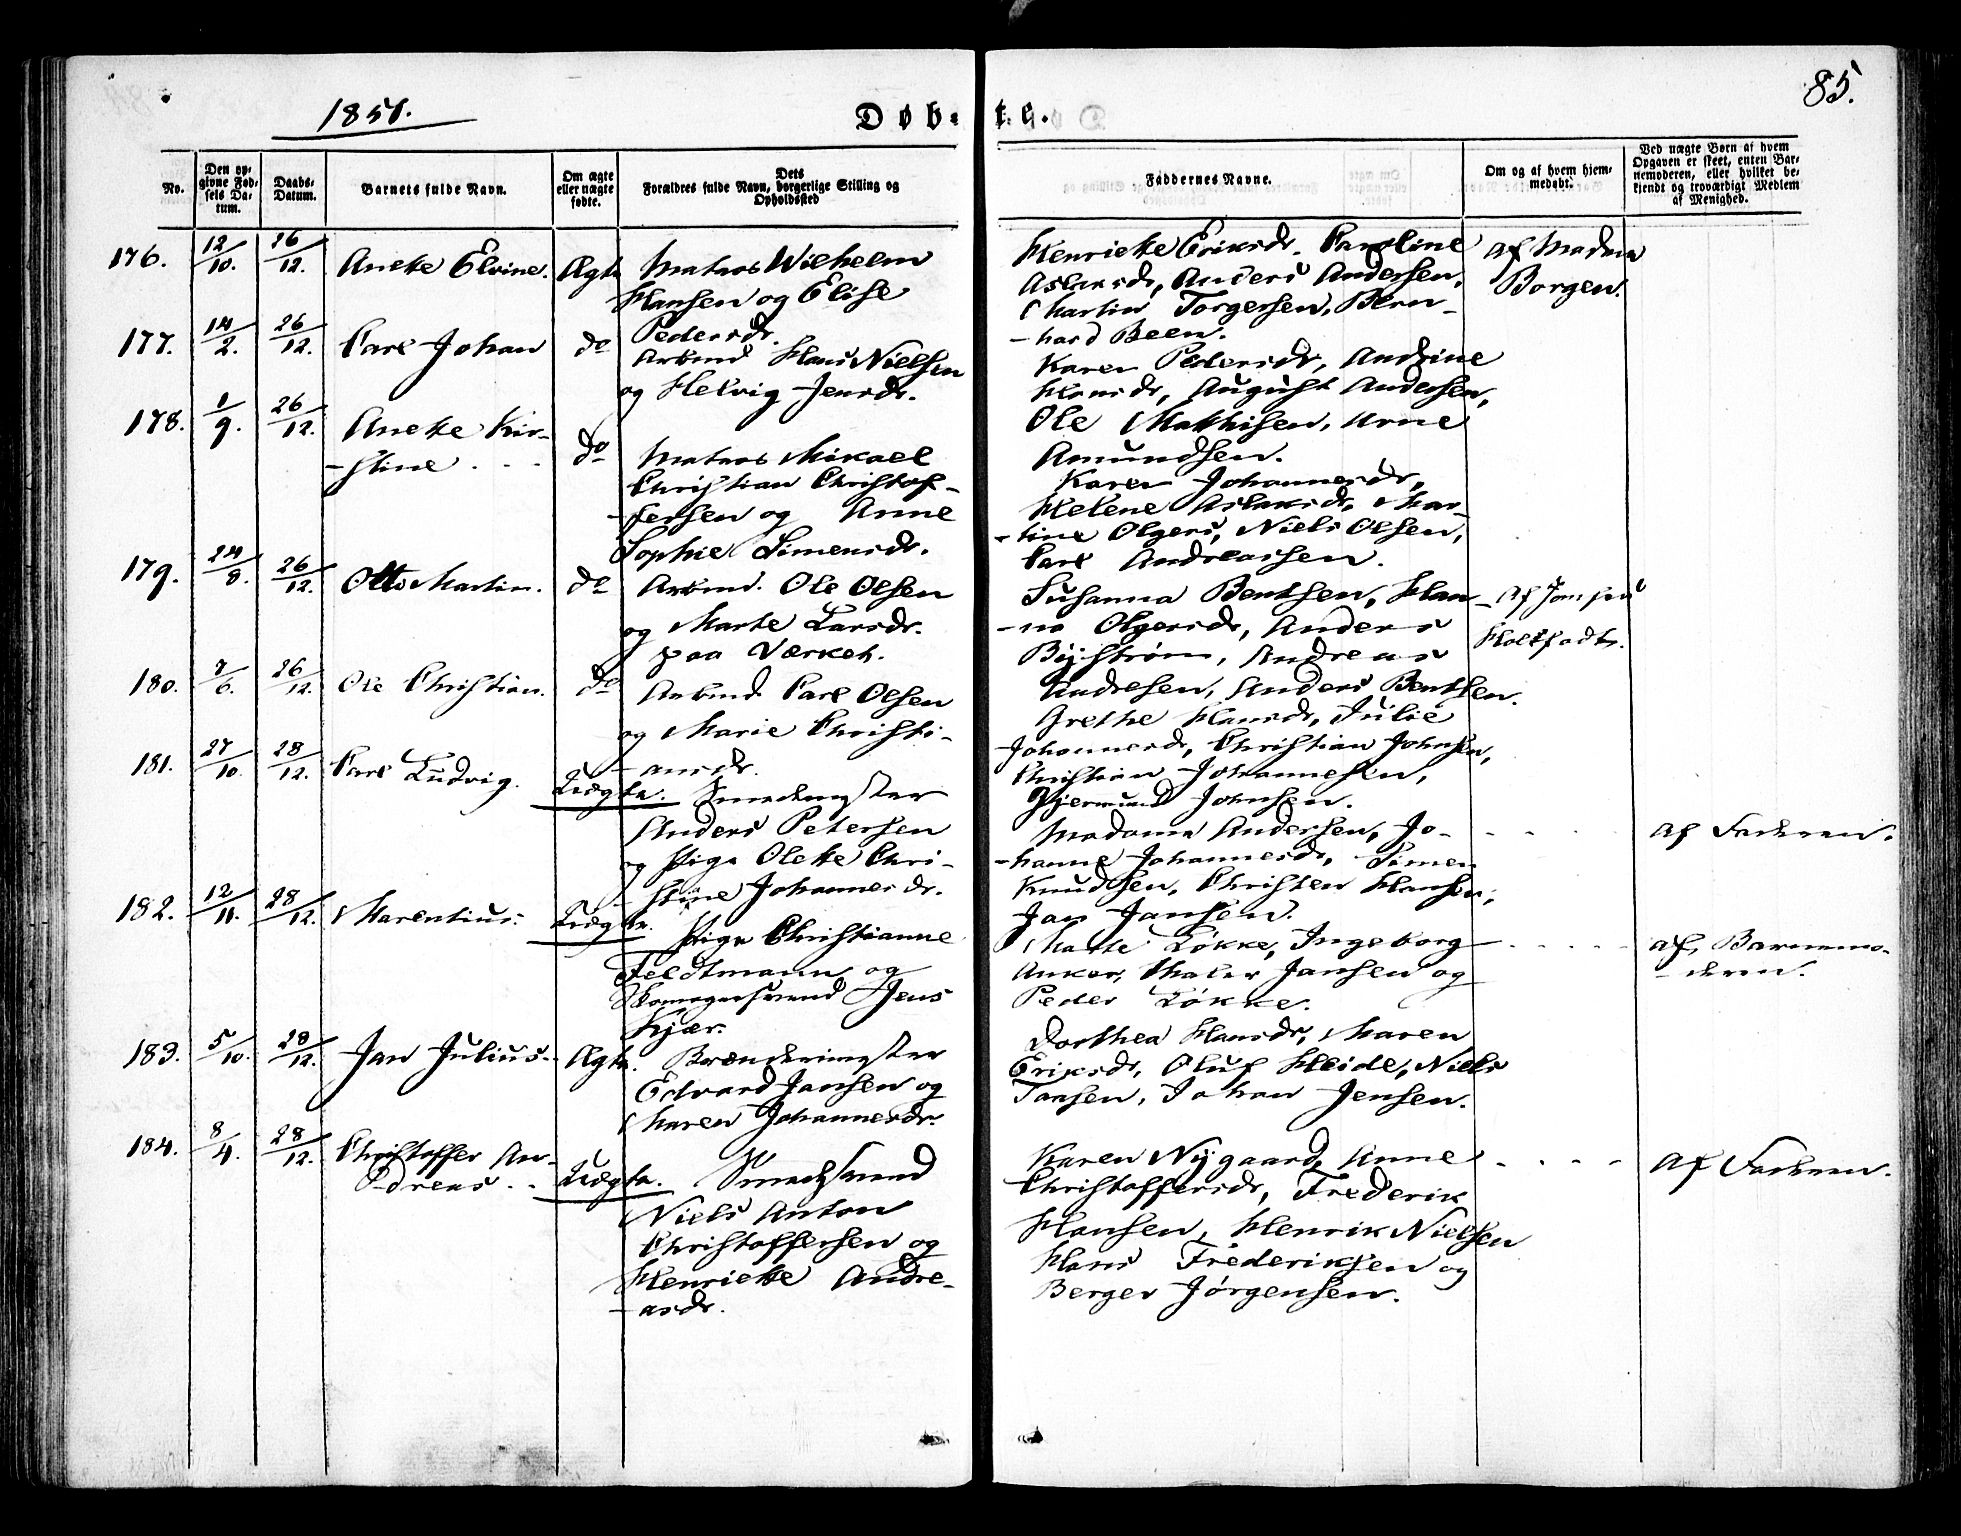 1851.
Døbte.
85.
No.
Den opgivne Fødsels Datum.
Daabs-Datum.
Barnets fulde Navn.
Om ægte eller uægte fødte.
Dets Forældres fulde Navn, borgerlige Stilling og Opholdssted
Faddernes Navne.
Om og af hvem hjemmedøbt.
Ved uægte Børn af hvem Opgaven er skeet, enten Barnemoderen, eller hvilket bekjendt og troværdigt Medlem af Menighed.
176. 12/10. 26/12. Anette Elvine. Ægte Matros Wilhelm
Hansen og Elise
Pedersdr.
Henriette Eriksdr. Caroline
Aslaksdr, Anders Andersen,
Martin Torgersen, Bern-
-hard Been.
Af Madm
Borgen.
177. 14/2. 26/12. Carl Johan do Arbmd Hans Nielsen
og Helvig Jensdr.
Karen Pedersdr, Andrine
Hansdr, August Andersen,
Ole Mathisen, Arne
Amundsen.
178. 1/9. 26/12. Anette Kir-
-stine . . . do Matros Mikael
Christian Christof-
-fersen og Anne
Sophie Simensdr.
Karen Johannesdr,
Helene Aslaksdr, Mar-
-tine Olgers, Niels Olsen,
Carl Andreassen.
179. 24/8. 26/12. Otto Martin. do Arbmd. Ole Olsen
og Marte Larsdr.
paa Værket.
Susanna Bentsen, Han-
-na Olgersdr, Anders
Bystrøm, Andreas
Andresen, Anders Bentsen.
Af
180. 7/6. 26/12. Ole Christian. do Arbmd Carl Olsen
og Marie Christi-
-ansdr.
Grethe Hansdr, Julie
Johannesdr, Christian Johnsen,
Christian Johannesen,
Gjermund Johnsen.
181. 27/10. 28/12. Carl Ludvig. Uægte. Smedemester
Anders Petersen
og Pige Olette Chri-
-stine Johannesdr.
Madame Andersen, Jo-
-hanne Johannesdr, Simen
Knudsen, Christen Hansen,
Jan Jansen.
Af Faderen.
182. 12/11. 28/12. Marentius. Uægte. Pige Christianne
Feldtmann og
Skomagersvend Jens
Kjær.
Marte Løkke, Ingeborg
Anker, Jansen og
Peder Løkke.
af Barnemo-
-deren.
183. 5/10. 28/12. Jan Julius. Ægte. Brændemester
Edvard Jansen og
Maren Johannesdr.
Dorthea Hansdr, Maren
Eriksdr, Oluf Heide, Niels
Jansen, Johan Jensen.
184. 8/4. 28/12. Christoffer An-
-dreas . . Uægte. Smedsvend
Niels Anton
Christoffersen og
Henriette Andre-
-asdr.
Karen Nygaard, Anne
Christoffersdr, Frederik
Hansen, Henrik Nielsen
Hans Frederiksen og
Berger Jørgensen.
Af Faderen.